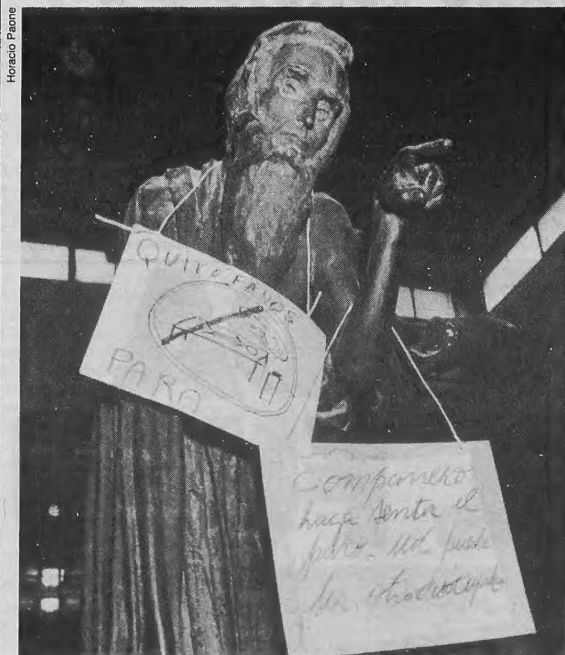 Horacio Paone
QUIROFANOS
PARO
Compañero
haga sentir el
paro. Ud. puede
ser otro